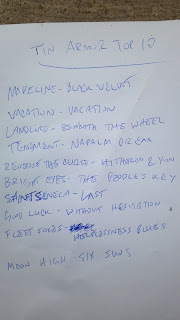 TIN ARMOR TOP 10
MADELINE - BLACK VELVET
VACATION - VACATION
LANDLORD - BENEATH THE WHEEL
TENEMENT - NAPALM DREAM
REVERSE THE CURSE - HITHER & YON
BRIGHT EYES - THE PEOPLE'S KEY
SAINTSENECA - LAST
GOOD LUCK - WITHOUT HESITATION
FLEET FOXES -
HELPLESSNESS BLUES
MOON HIGH - SIX SUNS